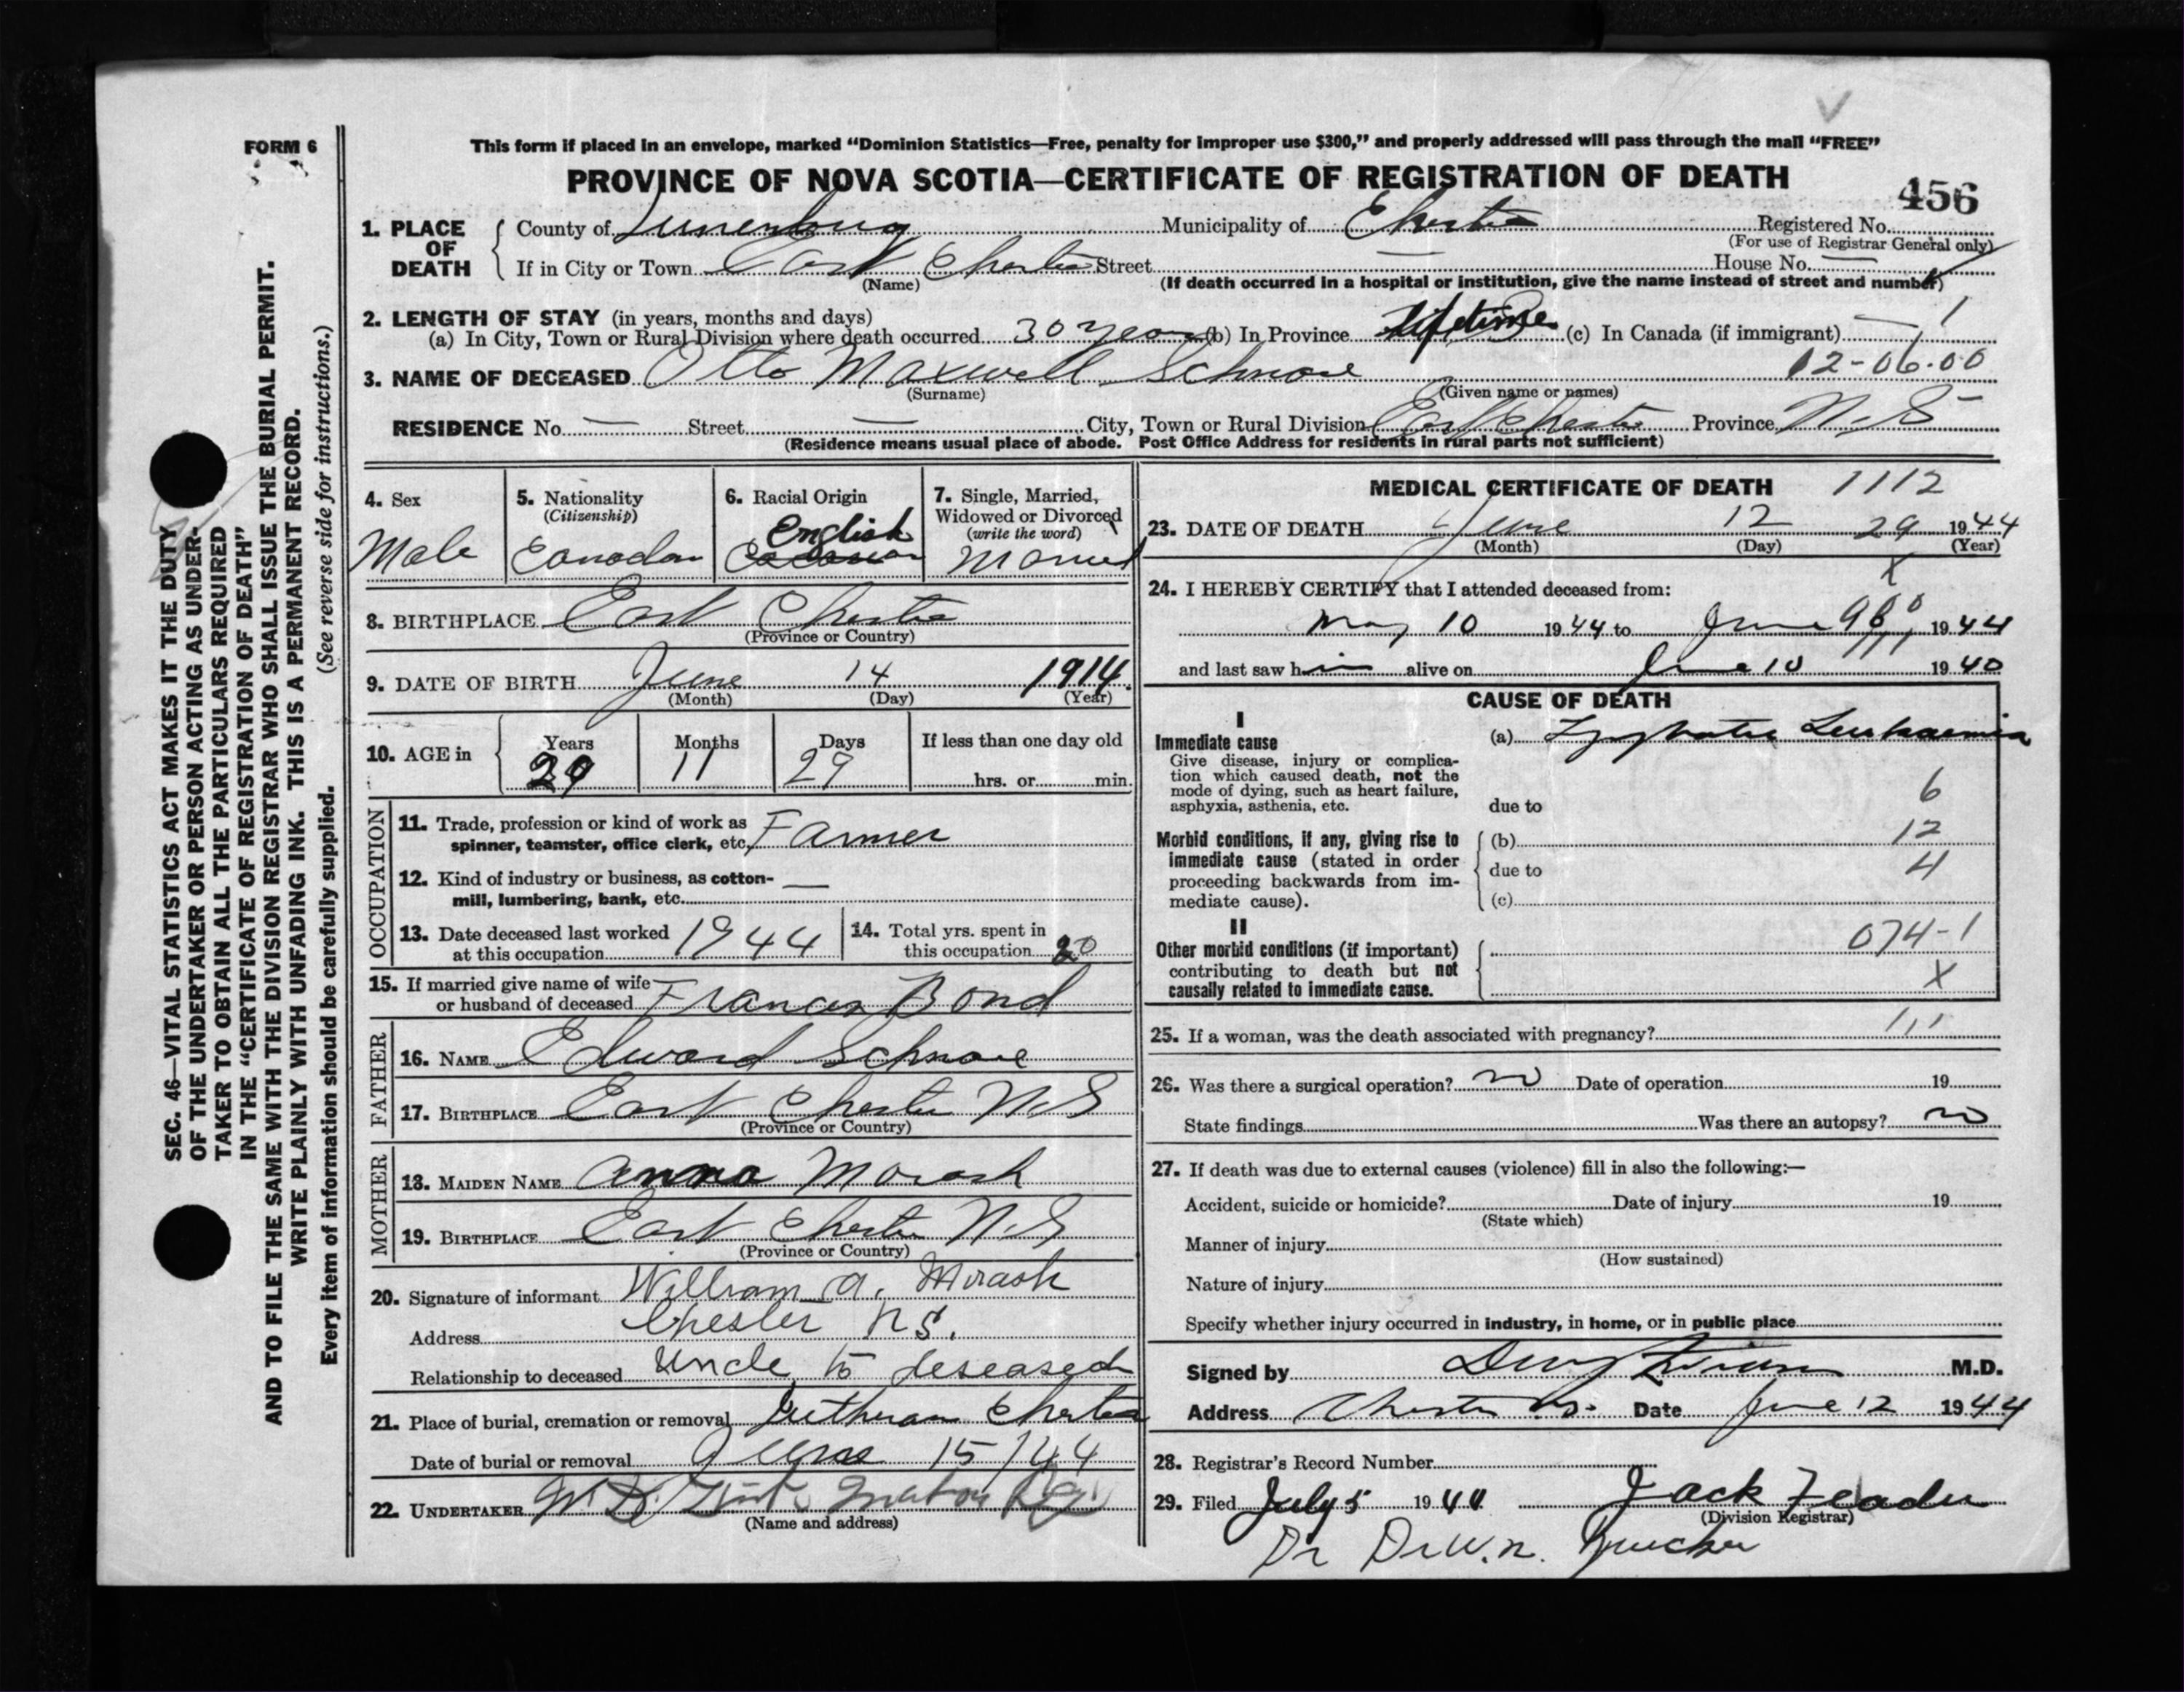 FORM 6
This form if placed in an envelope, marked “Dominion Statistics—Free, penalty for improper use $300,” and properly addressed will pass through the mail “FREE”
PROVINCE OF NOVA SCOTIA—CERTIFICATE OF REGISTRATION OF DEATH
456
1. PLACE OF DEATH
County of Lunenburg Municipality of Chester Registered No.
(For use of Registrar General only)
If in City or Town East Chester Street — House No. —
(Name) (If death occurred in a hospital or institution, give the name instead of street and number)
2. LENGTH OF STAY (in years, months and days)
(a) In City, Town or Rural Division where death occurred 30 years (b) In Province Lifetime (c) In Canada (if immigrant) — 1
3. NAME OF DECEASED Otto Maxwell Schnare 02-06.00
(Surname) (Given name or names)
RESIDENCE No. — Street — City, Town or Rural Division East Chester Province N.S
(Residence means usual place of abode. Post Office Address for residents in rural parts not sufficient)
4. Sex
Male
5. Nationality
(Citizenship)
Canadan
6. Racial Origin
English
7. Single, Married, Widowed or Divorced
(write the word)
Married
8. BIRTHPLACE East Chester
(Province or Country)
9. DATE OF BIRTH June 14 1914.
(Month) (Day) (Year)
10. AGE in
Years Months Days If less than one day old
29 11 29 hrs. or min.
OCCUPATION
11. Trade, profession or kind of work as
spinner, teamster, office clerk, etc. Farmer
12. Kind of industry or business, as cotton- —
mill, lumbering, bank, etc.
13. Date deceased last worked
at this occupation 1944
14. Total yrs. spent in
this occupation 20
15. If married give name of wife
or husband of deceased Frances Bond
FATHER
16. NAME Edward Schnare
17. BIRTHPLACE East Chester N.S
(Province or Country)
MOTHER
18. MAIDEN NAME Anna Morash
19. BIRTHPLACE East Chester N.S
(Province or Country)
20. Signature of informant William A. Morash
Address Chester N.S.
Relationship to deceased Uncle to deseased
21. Place of burial, cremation or removal Lutheran Chester
Date of burial or removal June 15/44
22. UNDERTAKER
(Name and address)
MEDICAL CERTIFICATE OF DEATH 1112
23. DATE OF DEATH June 12 29 1944
(Month) (Day) (Year)
x
24. I HEREBY CERTIFY that I attended deceased from:
May 10 1944 to June 1944
and last saw him alive on June 10 1940
CAUSE OF DEATH
I
Immediate cause
Give disease, injury or complica-
tion which caused death, not the
mode of dying, such as heart failure,
asphyxia, asthenia, etc.
(a) Lymphatic Leukaemia
6
due to
Morbid conditions, if any, giving rise to
immediate cause (stated in order
proceeding backwards from im-
mediate cause).
(b) 12
due to 4
(c)
II
Other morbid conditions (if important)
contributing to death but not
causally related to immediate cause.
074-1
X
25. If a woman, was the death associated with pregnancy?
26. Was there a surgical operation? no Date of operation 19
State findings Was there an autopsy? no
27. If death was due to external causes (violence) fill in also the following:—
Accident, suicide or homicide? Date of injury 19
(State which)
Manner of injury
(How sustained)
Nature of injury
Specify whether injury occurred in industry, in home, or in public place
Signed by M.D.
Address Chester N.S. Date June 12 1944
28. Registrar's Record Number
29. Filed July 5 1944 Jack
(Division Registrar)
SEC. 46—VITAL STATISTICS ACT MAKES IT THE DUTY
OF THE UNDERTAKER OR PERSON ACTING AS UNDER-
TAKER TO OBTAIN ALL THE PARTICULARS REQUIRED
IN THE “CERTIFICATE OF REGISTRATION OF DEATH”
AND TO FILE THE SAME WITH THE DIVISION REGISTRAR WHO SHALL ISSUE THE BURIAL PERMIT.
WRITE PLAINLY WITH UNFADING INK. THIS IS A PERMANENT RECORD.
Every item of information should be carefully supplied. (See reverse side for instructions.)